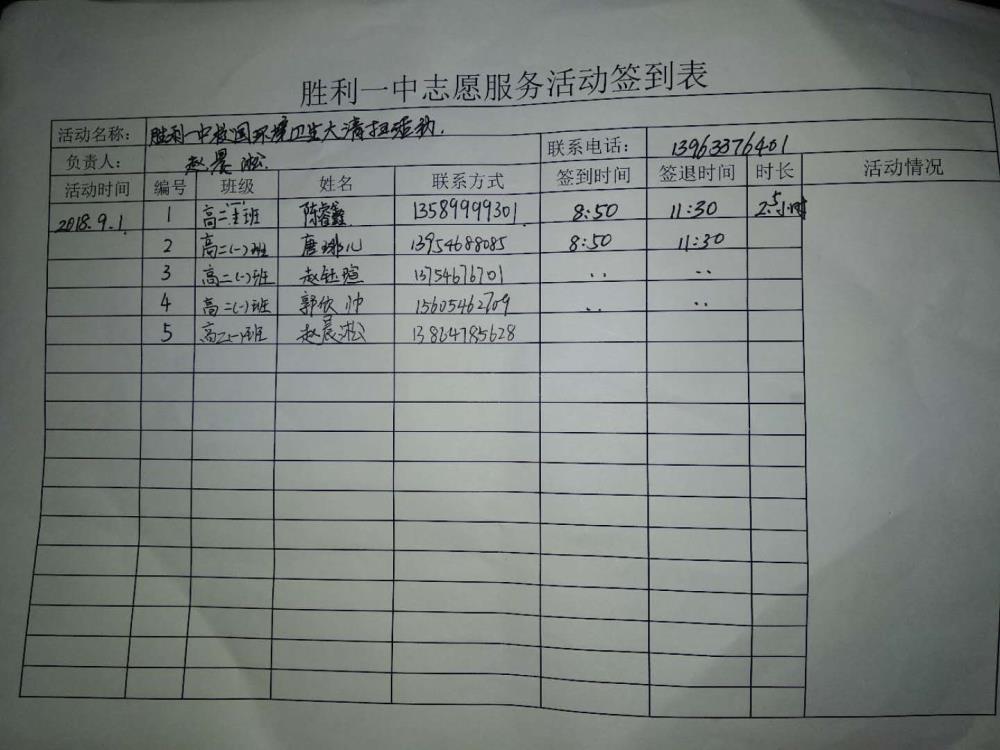 胜利一中志愿服务活动签到表
活动名称: 胜利一中校园环境卫生大清扫活动.
负责人: 赵晨淞 联系电话: 13963376401
活动时间 编号 班级 姓名 联系方式 签到时间 签退时间 时长 活动情况
2018.9.1. 1 高二 班 陈睿鑫 13589999301 8:50 11:30 2.5小时
2 高二(一)班 唐 儿 13954688085 8:50 11:30
3 高二(一)班 赵钰瑄 13754676701 .. ..
4 高二(一)班 郭依帅 15605462709 .. ..
5 高二(一)班 赵晨淞 13864785628